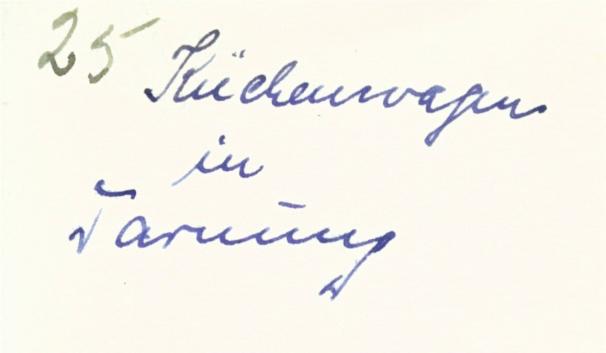 25 Küchenwagen
in
Tarnung